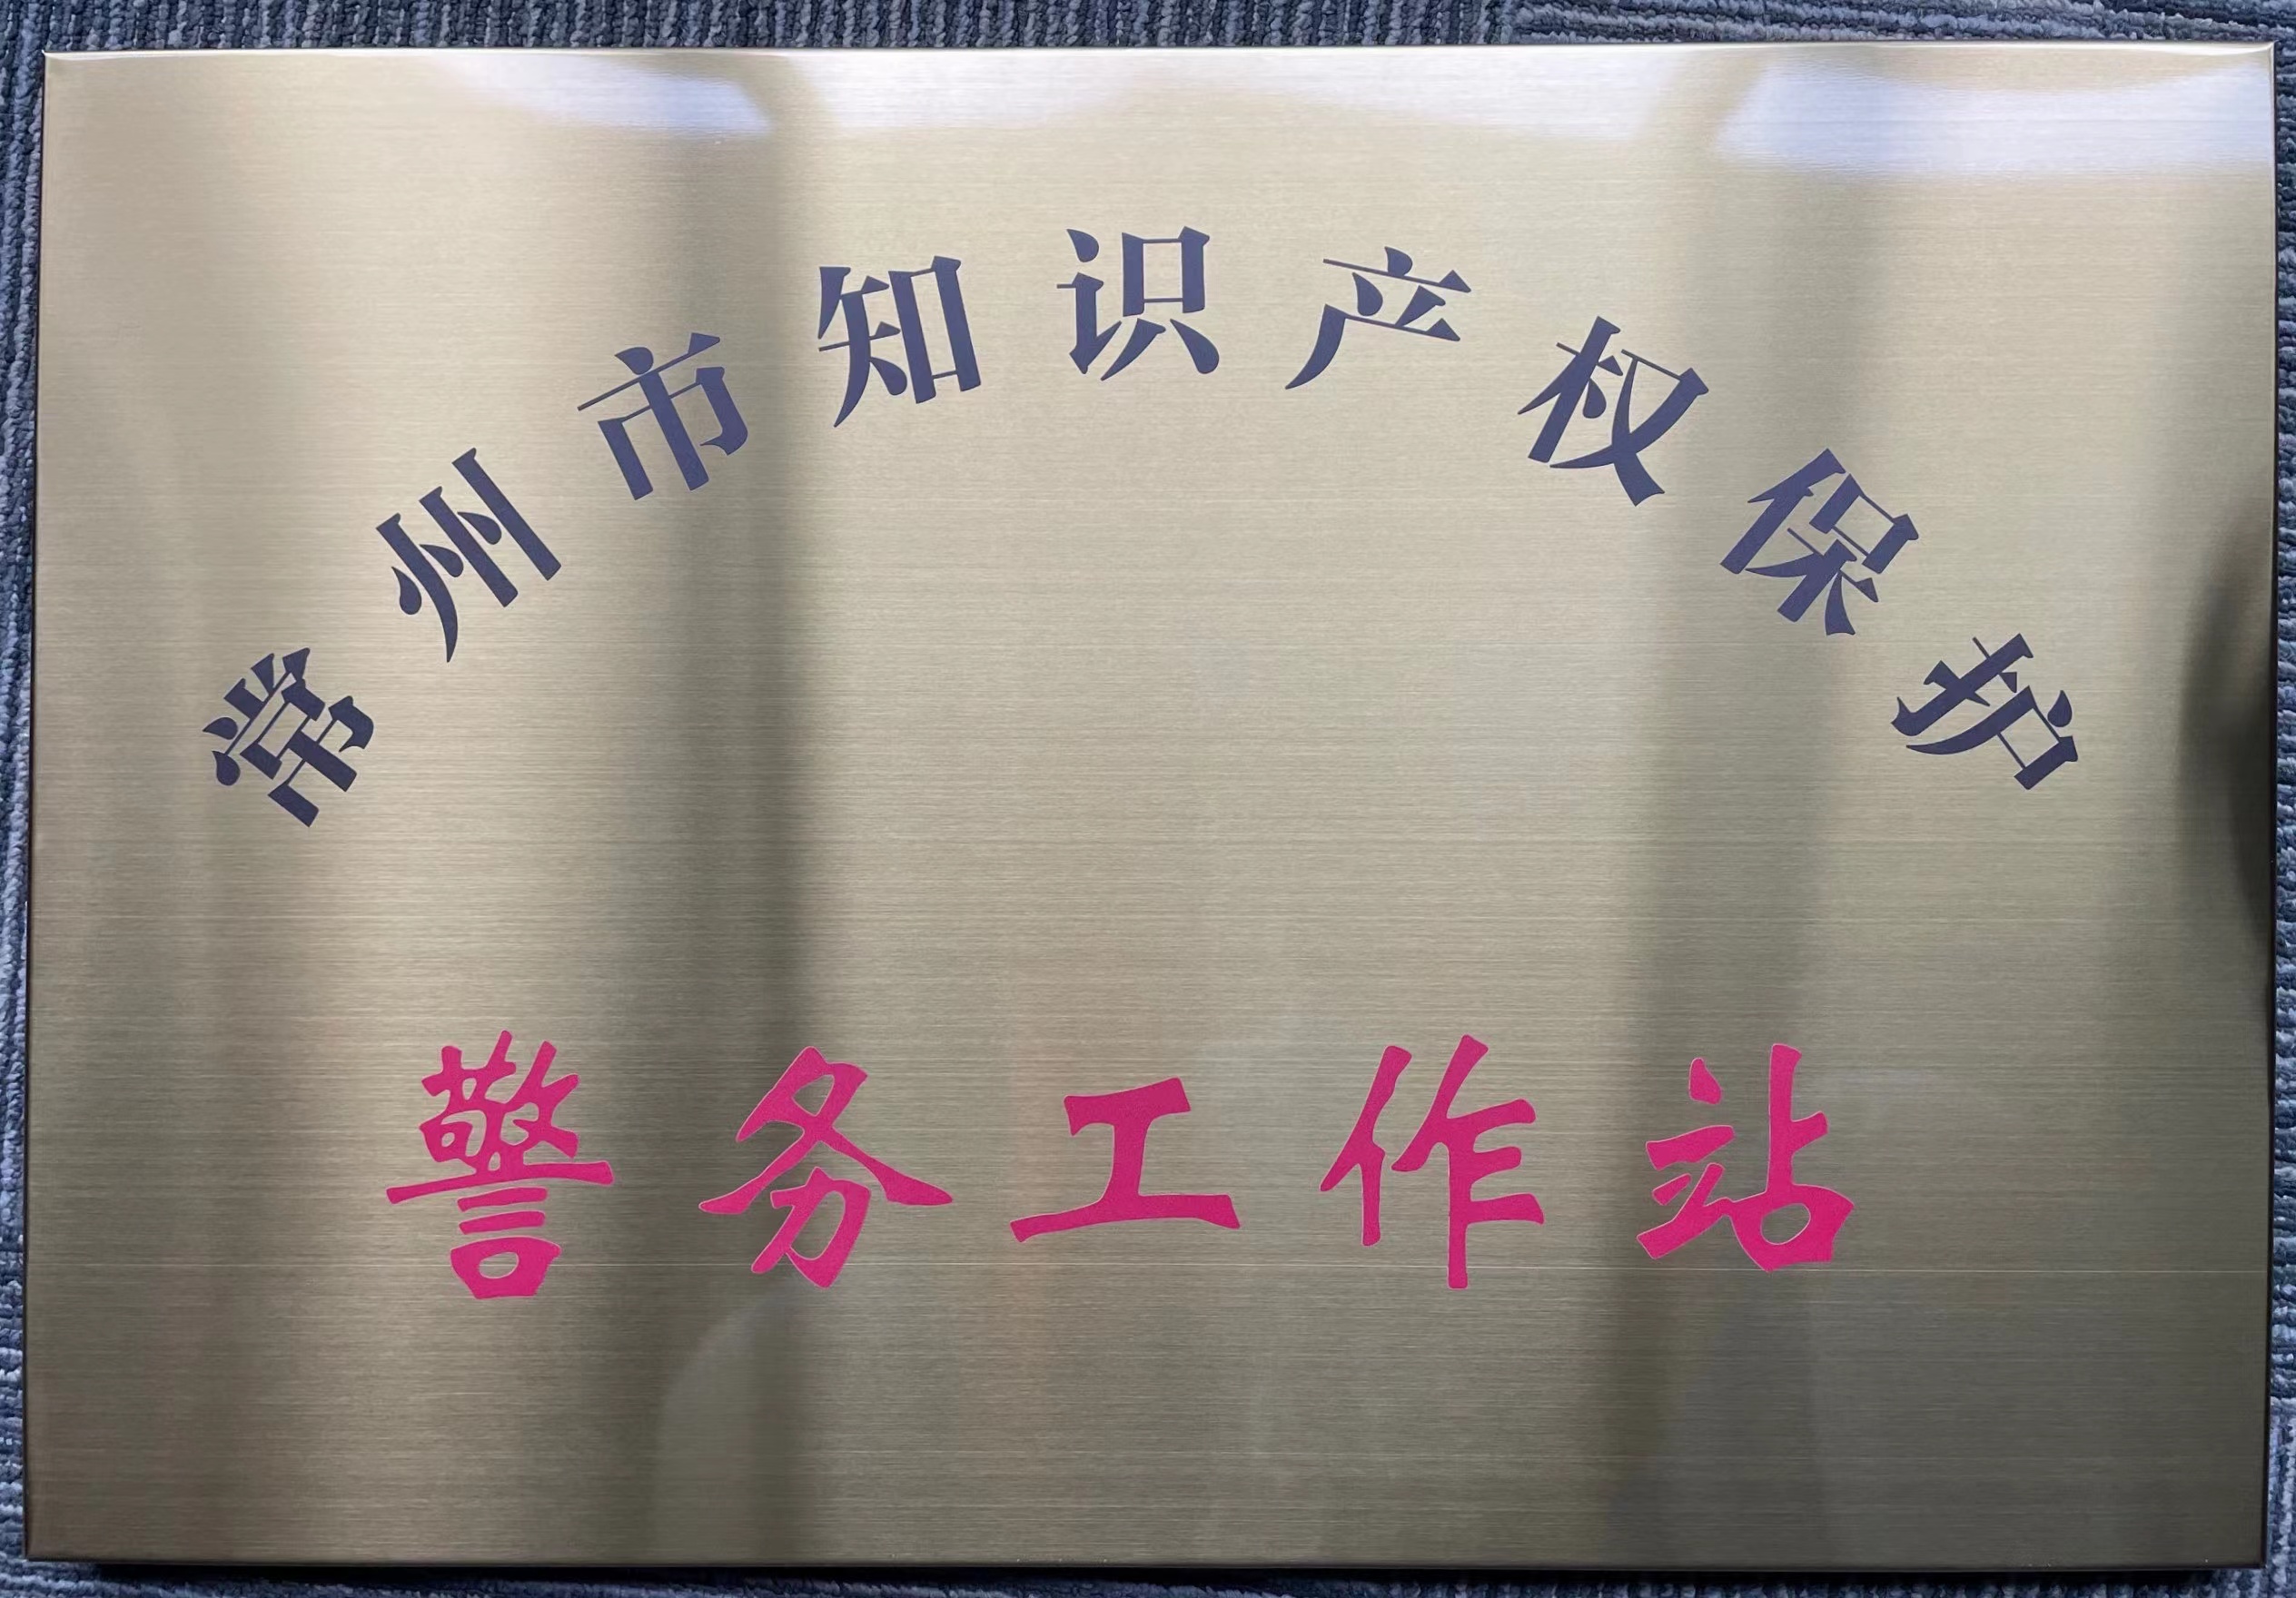 常州市知识产权保护
警务工作站